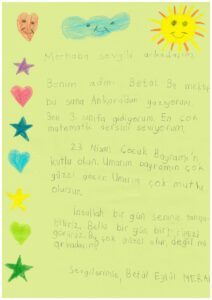 Merhaba sevgili arkadaşım
Benim adım Betül. Bu mektubu
bu sana Ankara'dan yazıyorum.
Ben 3. sınıfa gidiyorum. En çok
matematik dersini seviyorum.
23 Nisan Çocuk Bayramı'n
kutlu olsun. Umarım bayramın çok
güzel geçer. Umarım çok mutlu
olursun.
İnşallah bir gün seninle
Belki bir gün
görürüz. Bu çok güzel olur, değil mi
arkadaşım
Sevgilerimle, Betül Eylül